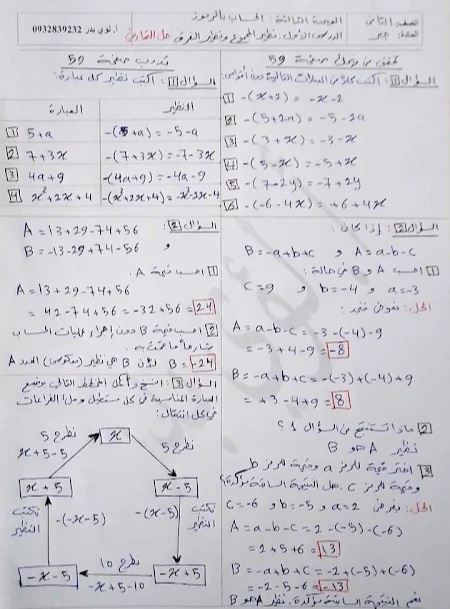 الصف: الثامن
المادة: جبر
الوحدة الثالثة: الحساب بالرموز
الدرس الأول: نظير المجموع ونظير الفرق
حل التمارين
0932839232
تحقق من فهمك صفحة 59
السؤال 1: اكتب كلاً من العبارات التالية دون أقواس:
1 -(x+2) = -x-2
2 -(5+2a) = -5-2a
3 -(3+x) = -3-x
4 -(5-x) = -5+x
5 -(7-2y) = -7+2y
6 -(-6-4x) = +6+4x
السؤال 2: إذا كان:
A=a-b-c و B=-a+b+c
1 احسب A و B في حالة:
a=-3 و b=-4 و c=9
الحل: نعوض فنجد:
A=a-b-c=-3-(-4)-9
=-3+4-9=-8
B=-a+b+c=-(-3)+(-4)+9
=+3-4+9=8
2 ماذا تستنتج من السؤال 1؟
نظير A هو B
3 اختر قيمة للرمز a وقيمة للرمز b
وقيمة للرمز c. هل النتيجة السابقة مؤكدة؟
الحل: بفرض a=2 و b=-5 و c=-6
A=a-b-c=2-(-5)-(-6)
=2+5+6=13
B=-a+b+c=-2+(-5)+(-6)
=-2-5-6=-13
نعم النتيجة السابقة مؤكدة. نظير A هو B
تدرب صفحة 59
السؤال 1: اكتب نظير كل عبارة:
العبارة النظير
1 5+a -(5+a)=-5-a
2 7+3x -(7+3x)=-7-3x
3 4a+9 -(4a+9)=-4a-9
4 x²+2x+4 -(x²+2x+4)=-x²-2x-4
السؤال 2:
A=13+29-74+56
و
B=-13-29+74-56
1 احسب قيمة A:
A=13+29-74+56
=42-74+56=-32+56=24
2 احسب قيمة B دون إجراء عمليات الحساب
شارحاً ما قمت به.
B=-24 لأن B هي نظير (معكوس) العدد A
السؤال 3: انسخ وأكمل المخطط التالي وضع
العبارة المناسبة في كل مستطيل واملأ الفراغات
في كل انتقال:
x
نطرح 5
x+5-5
نطرح 5
x+5
x-5
نكتب النظير
-(-x-5)
-(x-5)
نكتب النظير
-x-5
نطرح 10
-x+5-10
-x+5